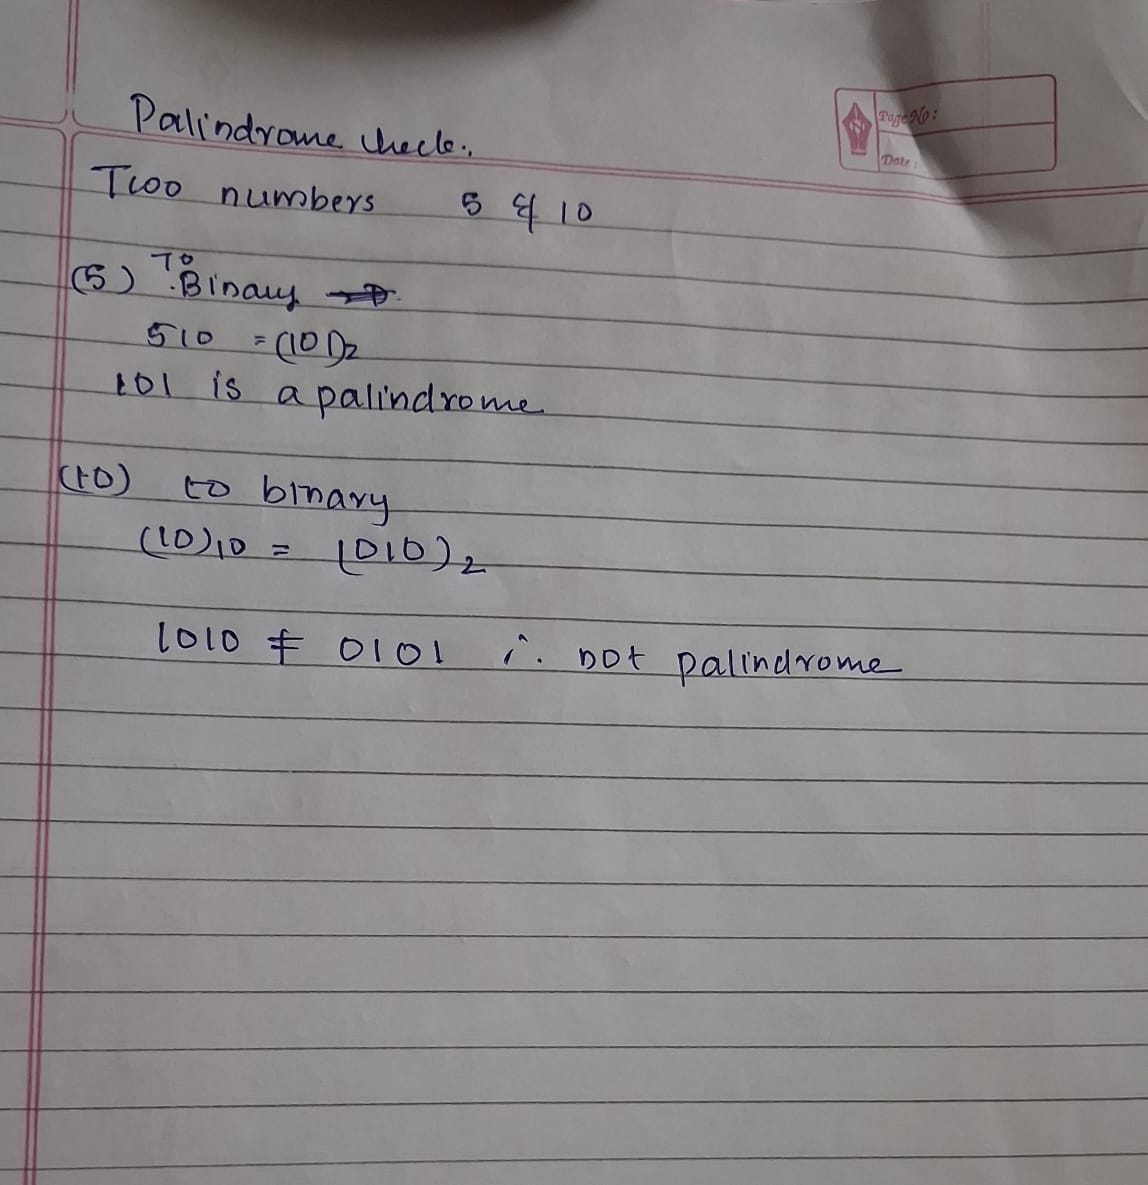 Page No:
Date:
Palindrome check.
Two numbers 5 & 10
(5) To Binary →
510 = (101)2
101 is a palindrome
(10) to binary
(10)10 = 1010)2
1010 ≠ 0101 ∴ not palindrome